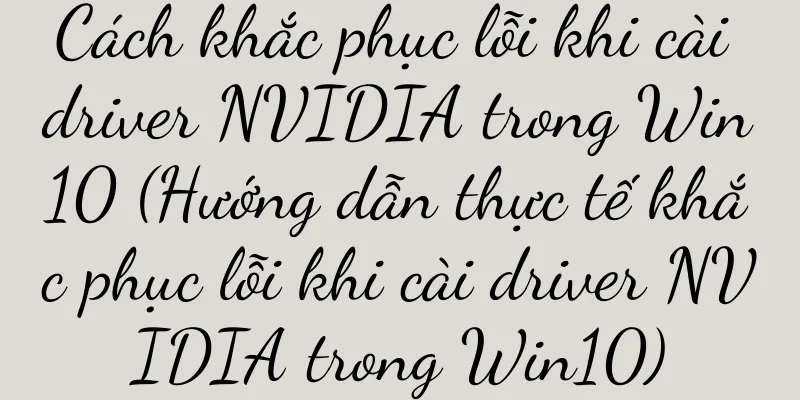 Cách khắc phục lỗi khi cài
driver NVIDIA trong Win
10 (Hướng dẫn thực tế khắ
c phục lỗi khi cài driver NV
IDIA trong Win10)